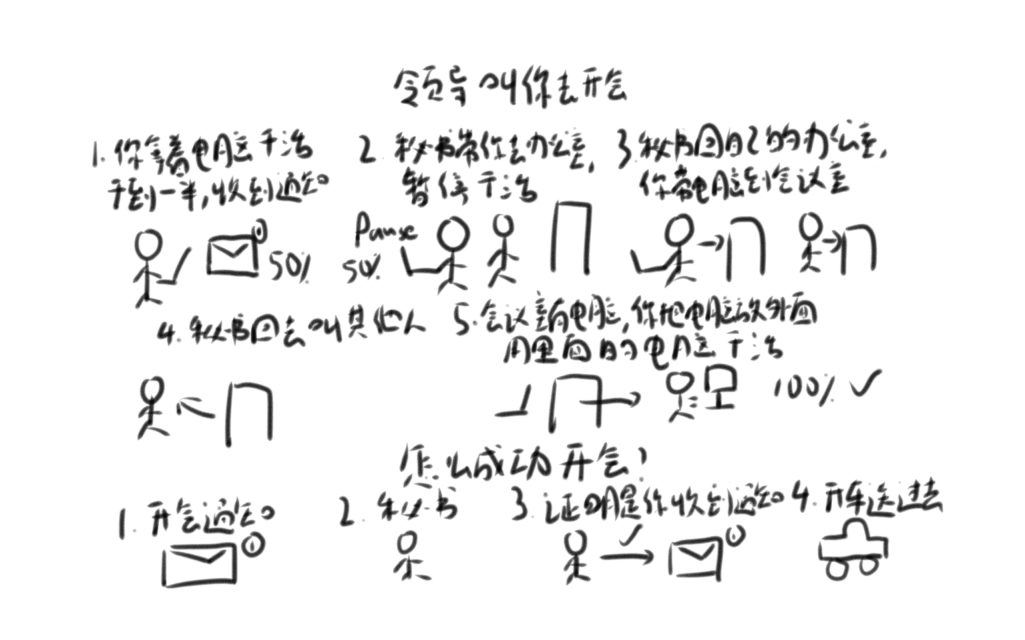 领导叫你去开会
1. 你拿着电脑干活
干到一半,收到通知
2. 秘书带你去办公室,
暂停干活
3. 秘书回自己的办公室,
你带电脑到会议室
50%
Pause
50%
4. 秘书回去叫其他人
5. 会议室有电脑,你把电脑放外面
用里面的电脑干活
100% ✓
怎么成功开会?
1. 开会通知
2. 秘书
3. 证明是你收到通知
4. 开车送过去